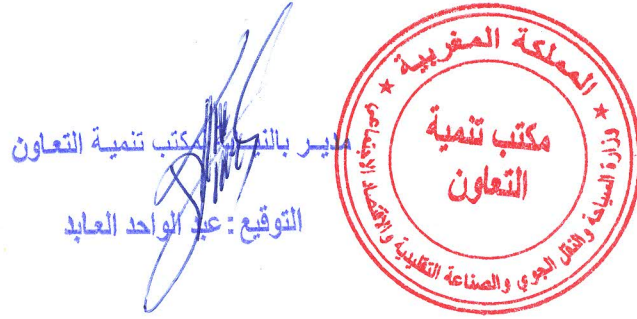 مديـر بالنيـابة لمكتب تنميـة التعـاون
التوقيع : عبد الواحد العـابد
المملكة المغربية
وزارة السياحة والنقل الجوي والصناعة التقليدية والاقتصاد الاجتماعي
مكتب تنمية
التعاون